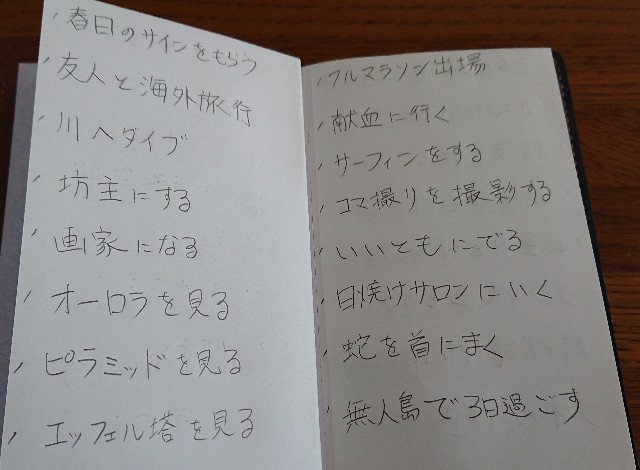 春日のサインをもらう
友人と海外旅行
川へダイブ
坊主にする
画家になる
オーロラを見る
ピラミッドを見る
エッフェル塔を見る
フルマラソン出場
献血に行く
サーフィンをする
コマ撮りを撮影する
いいともにでる
日焼けサロンにいく
蛇を首にまく
無人島で3日過ごす